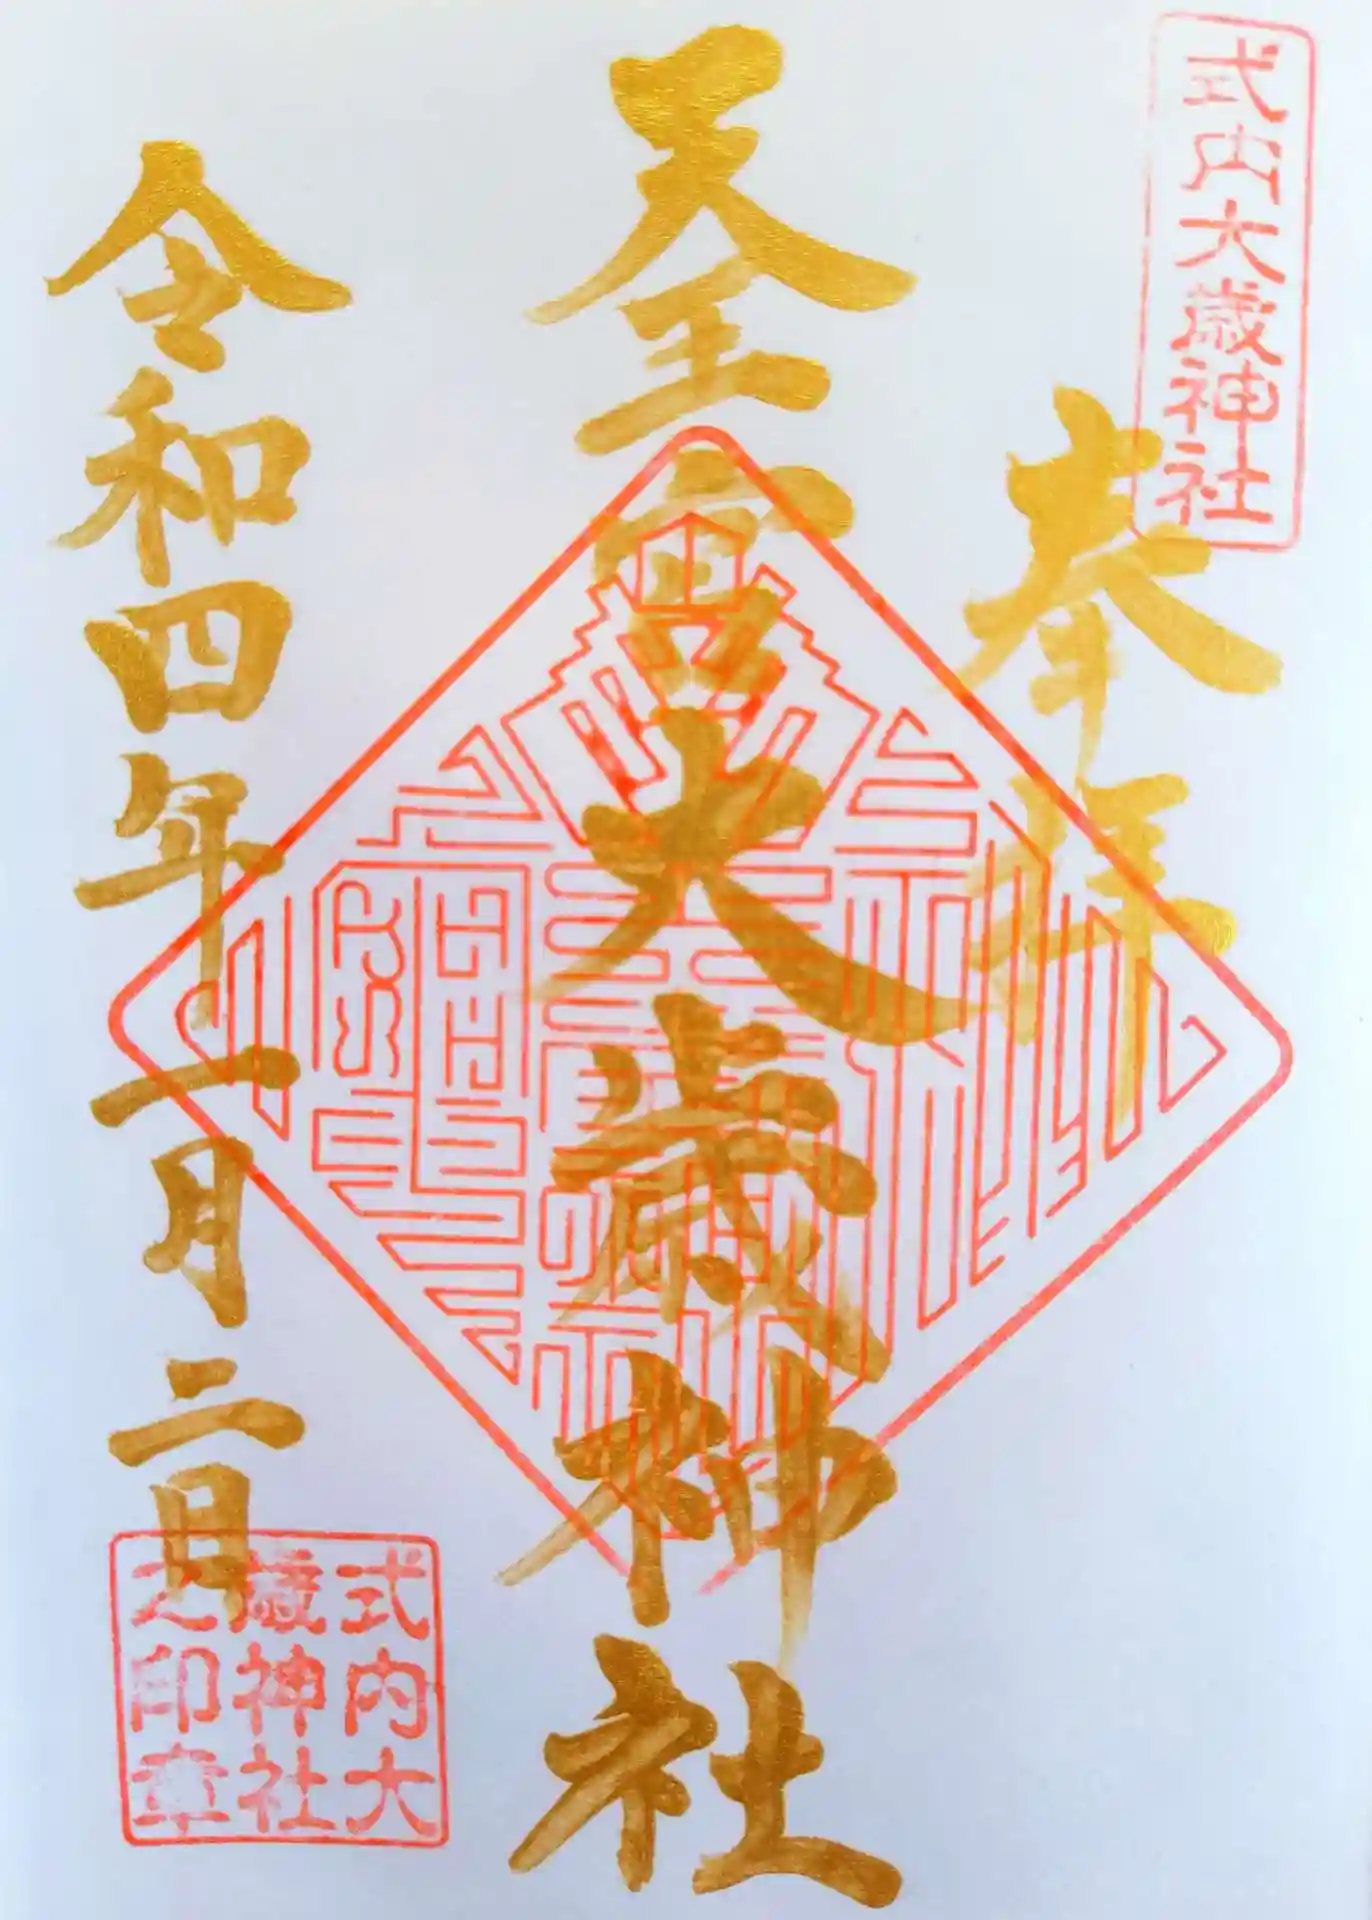 式内大歳神社
奉拝
天王宮大歳神社
令和四年一月二日
式内大
歳神社
之印章